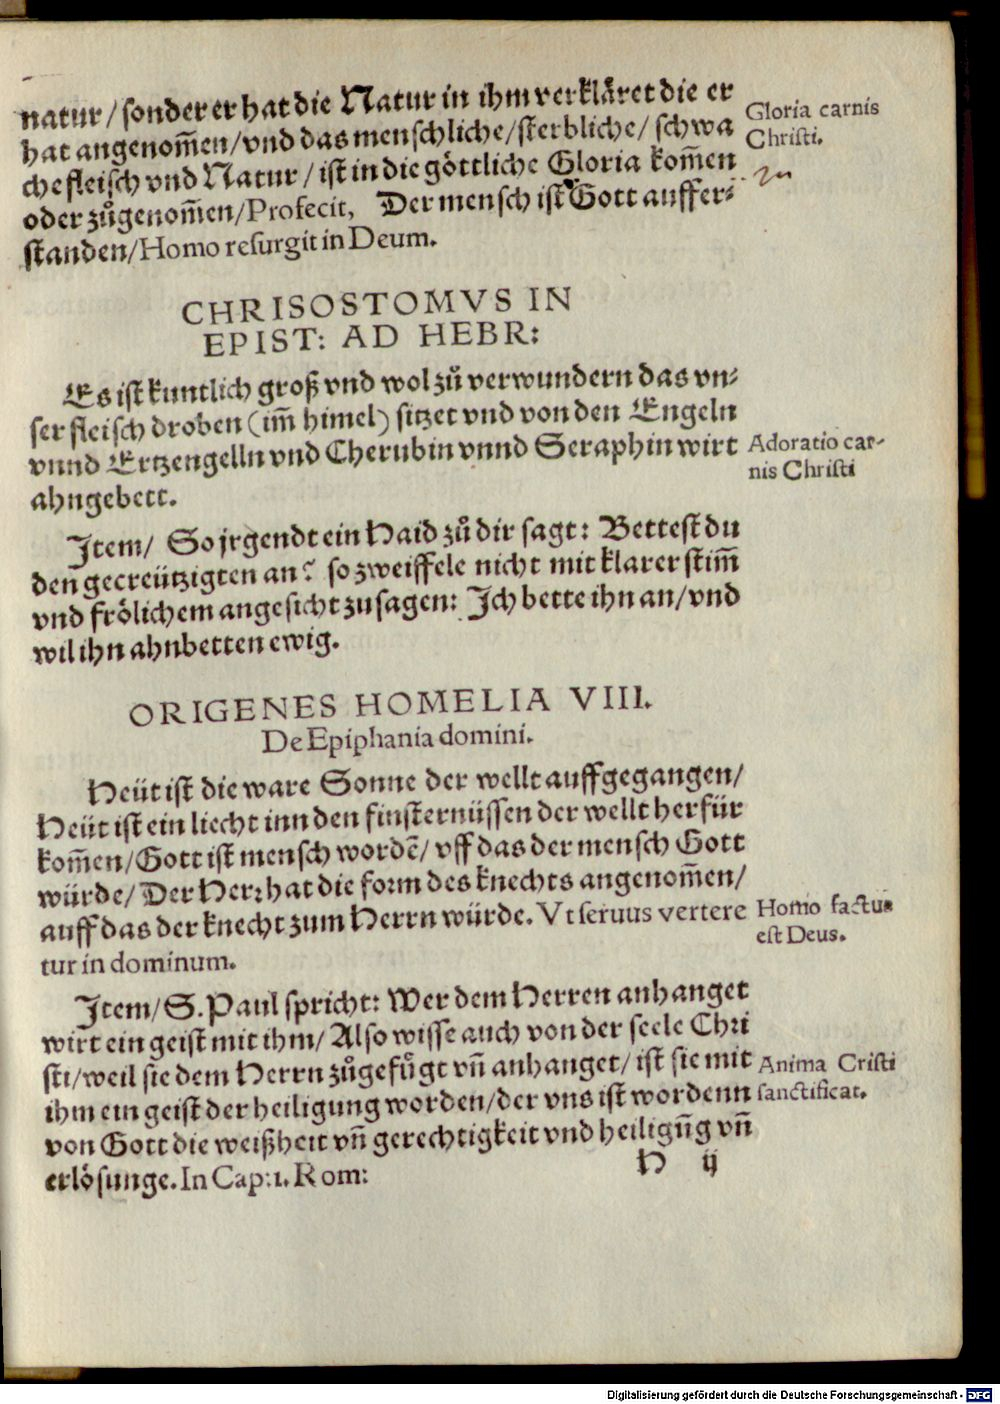 natur/ sonder er hat die Natur in ihm verkläret die er
hat angenom̃en/ vnd das menschliche/ sterbliche/ schwa
che fleisch vnd Natur/ ist in die göttliche Gloria kom̃en
oder zůgenom̃en/ Profecit, Der mensch ist Gott auffer⸗
standen/ Homo resurgit in Deum.
Gloria carnis
Christi.
CHRISOSTOMVS IN
EPIST: AD HEBR:
Es ist kuntlich groß vnd wol zů verwundern das vn⸗
ser fleisch droben (im̃ himel) sitzet vnd von den Engeln
vnnd Ertzengelln vnd Cherubin vnnd Seraphin wirt
ahngebett.
Adoratio car-
nis Christi
Item/ So jrgendt ein Haid zů dir sagt: Bettest du
den gecreützigten an? so zweiffele nicht mit klarer stim̃
vnd frölichem angesicht zu sagen: Ich bette ihn an/ vnd
wil ihn ahnbetten ewig.
ORIGENES HOMELIA VIII.
De Epiphania domini.
Heüt ist die ware Sonne der wellt auffgegangen/
Heüt ist ein liecht inn den finsternüssen der wellt herfür
kom̃en/ Gott ist mensch wordẽ/ vff das der mensch Gott
würde/ Der Herr hat die form des knechts angenom̃en/
auff das der knecht zum Herrn würde. Vt seruus vertere
tur in dominum.
Homo factus
est Deus.
Item/ S. Paul spricht: Wer dem Herren anhanget
wirt ein geist mit ihm/ Also wisse auch von der seele Chri
sti/ weil sie dem Herrn zůgefůgt vñ anhanget/ ist sie mit
ihm ein geist der heiligung worden/ der vns ist wordenn
von Gott die weißheit vñ gerechtigkeit vnd heiligũg vñ
erlösunge. In Cap: 1. Rom:
Anima Cristi
sanctificat.
H ij
Digitalisierung gefördert durch die Deutsche Forschungsgemeinschaft - DFG